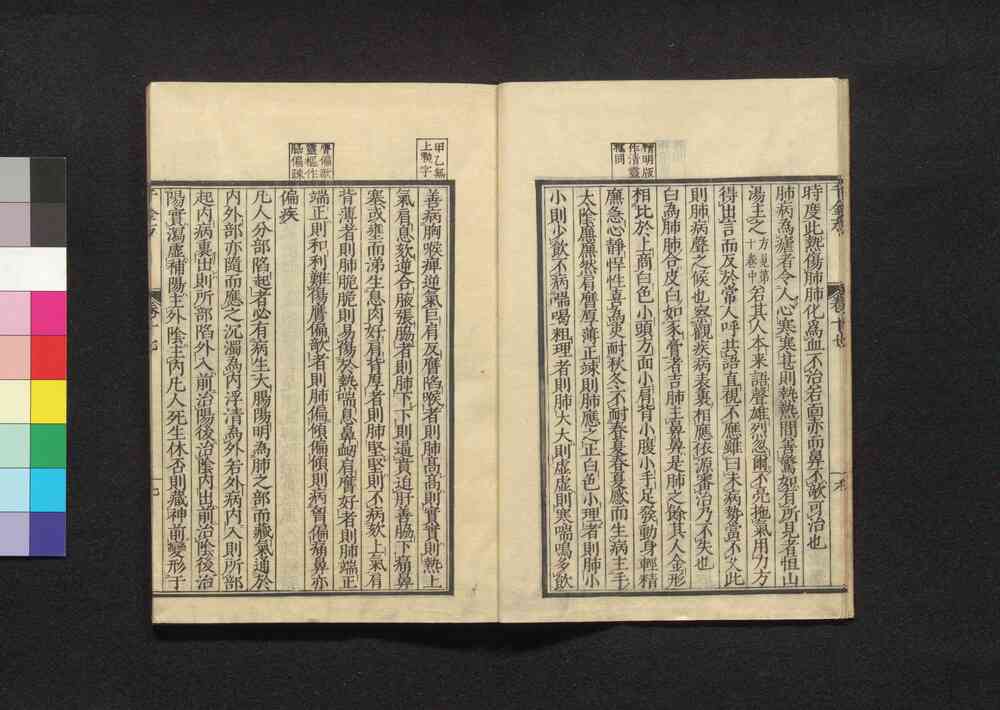 精明版
作清靈
樞同
時度此熱傷肺肺化為血不治若面赤而鼻不欹可治也
肺病為瘧者令人心寒寒甚則熱熱間善驚如有所見者恒山
湯主之方見第十卷中若其人本来語聲雄烈忽爾不亮拖氣用力方
得出言而反於常人呼共語直視不應雖曰未病勢當不久此
則肺病聲之候也察觀疾病表裏相應依源審治乃不失也
白為肺肺合皮白如豕膏者吉肺主鼻鼻是肺之餘其人金形
相比於上商白色小頭方面小肩背小腹小手足發動身輕精
廉急心靜悍性喜為吏耐秋冬不耐春夏春夏感而生病主手
太陰廉廉然肩膺厚薄正竦則肺應之正白色小理者則肺小
小則少飲不病喘喝粗理者則肺大大則虛虛則寒喘鳴多飲
甲乙無
上勒字
膺偏欹
靈樞作
脇偏疎
善病胸喉痺逆氣巨肩反膺陷喉者則肺高高則實實則熱上
氣肩息欬逆合腋張脇者則肺下下則逼賁迫肝善脇下痛鼻
塞或壅而涕生息肉好肩背厚者則肺堅堅則不病欬上氣肩
背薄者則肺脆脆則易傷於熱喘息鼻衄肩膺好者則肺端正
端正則和利難傷膺偏欹者則肺偏傾偏傾則病胷偏痛鼻亦
偏疾
凡人分部陷起者必有病生大腸陽明為肺之部而藏氣通於
内外部亦隨而應之沉濁為内浮清為外若外病内入則所部
起内病裏出則所部陷外入前治陽後治陰内出前治陰後治
陽實瀉虛補陽主外陰主内凡人死生休否則藏神前變形于